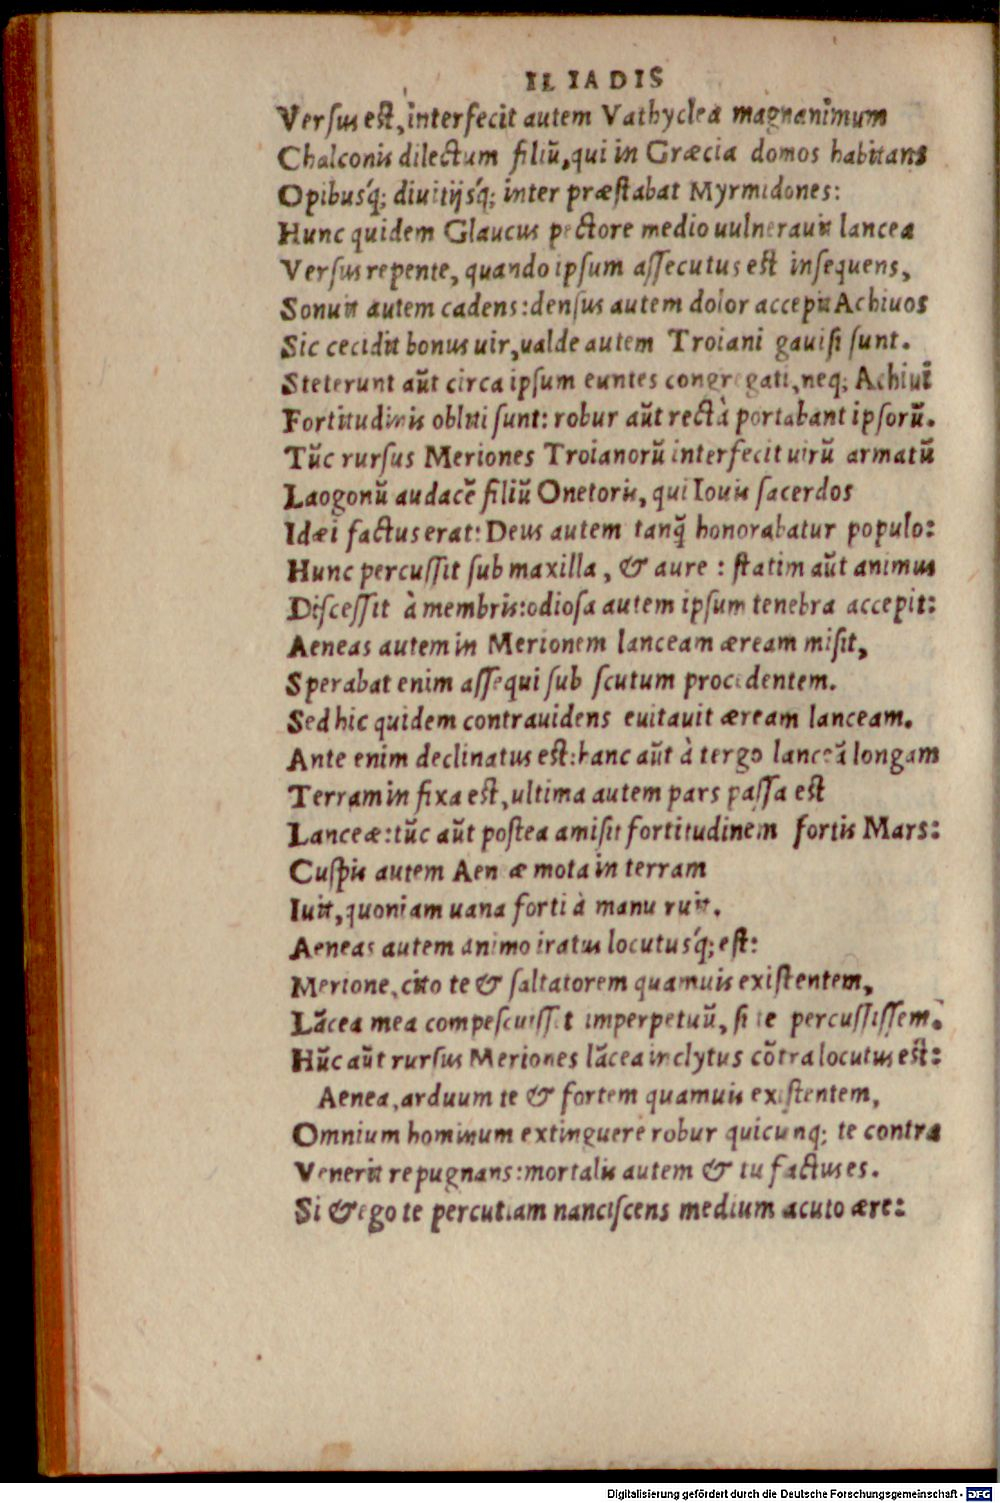 ILIADIS
Versus est, interfecit autem Vathyclea magnanimum
Chalconis dilectum filiū, qui in Græcia domos habitans
Opibusq́; diuitijsq́; inter præstabat Myrmidones:
Hunc quidem Glaucus pectore medio uulnerauit lancea
Versus repente, quando ipsum assecutus est insequens,
Sonuit autem cadens: densus autem dolor accepit Achiuos
Sic cecidit bonus uir, ualde autem Troiani gauisi sunt.
Steterunt aūt circa ipsum euntes congregati, neq; Achiui
Fortitudinis obliti sunt: robur aūt rectà portabant ipsorū.
Tūc rursus Meriones Troianorū interfecit uirū armatū
Laogonū audacē filiū Onetoris, qui Iouis sacerdos
Idæi factus erat: Deus autem tanq̃ honorabatur populo:
Hunc percussit sub maxilla, & aure : statim aūt animus
Discessit à membris: odiosa autem ipsum tenebra accepit:
Aeneas autem in Merionem lanceam æream misit,
Sperabat enim assequi sub scutum procedentem.
Sed hic quidem contrauidens euitauit æream lanceam.
Ante enim declinatus est: hanc aūt à tergo lanceā longam
Terram in fixa est, ultima autem pars passa est
Lanceæ: tūc aūt postea amisit fortitudinem fortis Mars:
Cuspis autem Aen æ mota in terram
Iuit, quoniam uana forti à manu ruit.
Aeneas autem animo iratus locutusq́; est:
Merione, cito te & saltatorem quamuis existentem,
Lācea mea compescuisset imperpetuū, si te percussissem.
Hūc aūt rursus Meriones lācea inclytus cōtra locutus est:
Aenea, arduum te & fortem quamuis existentem,
Omnium hominum extinguere robur quicunq; te contra
Venerit repugnans: mortalis autem & tu factus es.
Si & ego te percutiam nanciscens medium acuto ære:
Digitalisierung gefördert durch die Deutsche Forschungsgemeinschaft - DFG